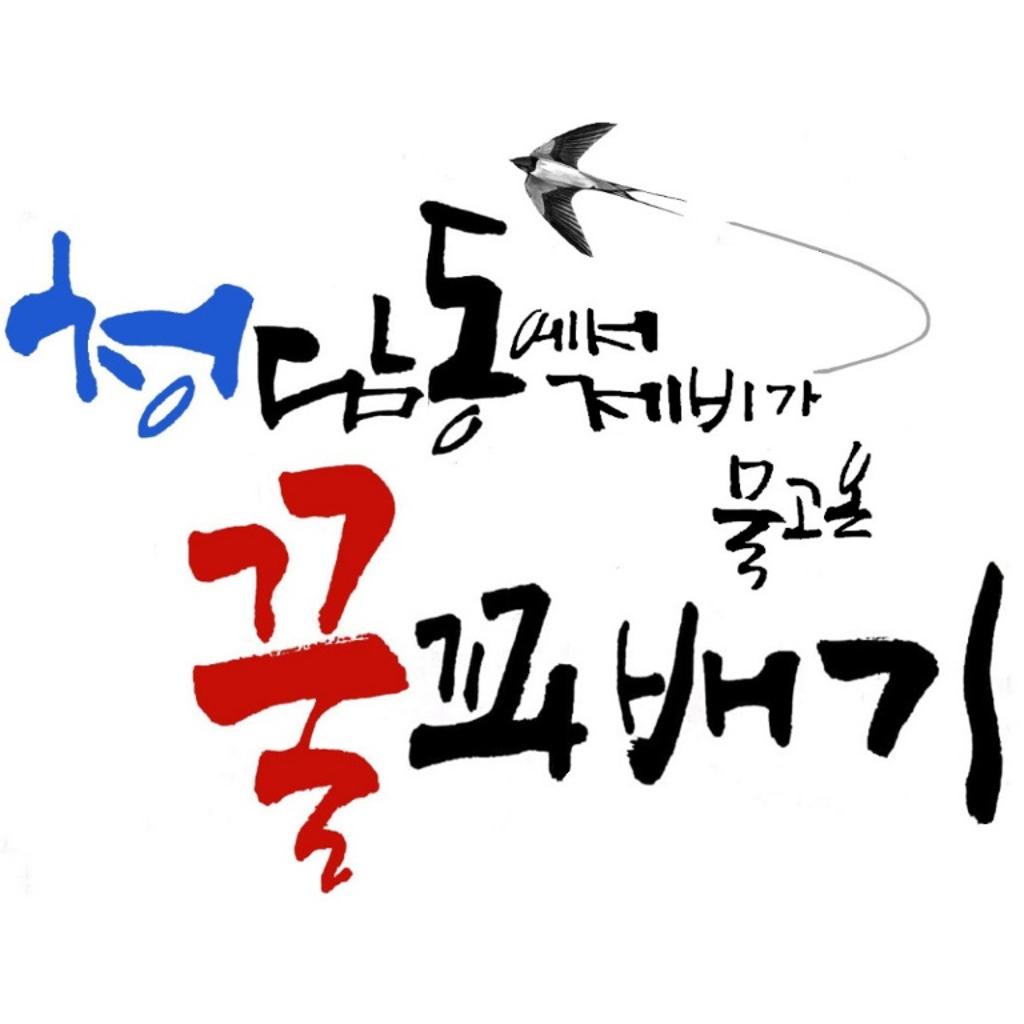 청담동에서
제비가
물고온
꿀꽈배기